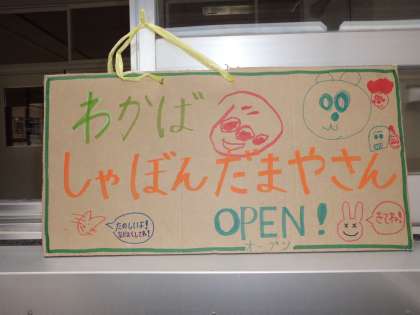 わかば
しゃぼんだまやさん
OPEN!
オープン
たのしいよ!
きてね!